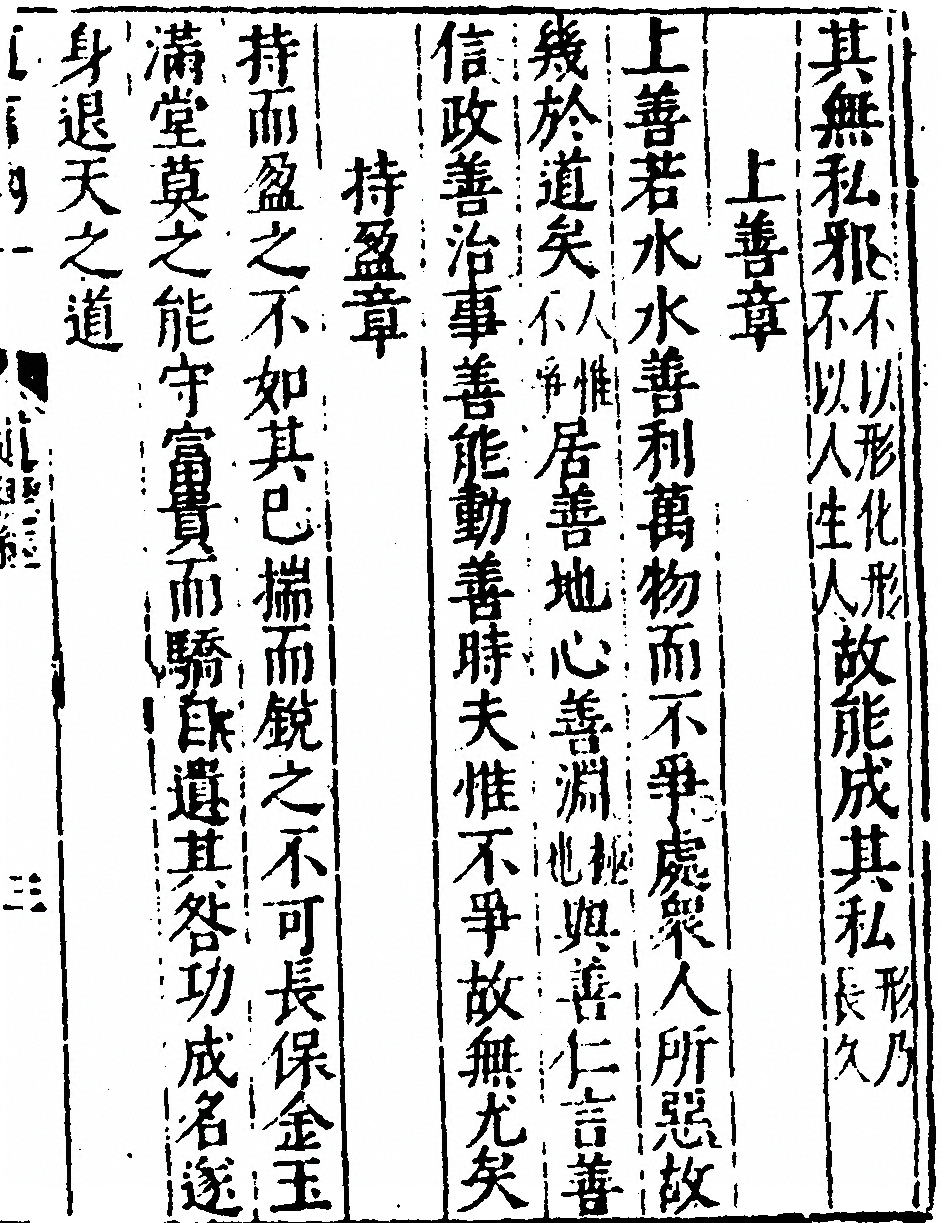 其無私邪不以形化形不以人生人故能成其私形乃長久
上善章
上善若水水善利萬物而不爭處衆人所惡故
幾於道矣人惟不爭居善地心善淵極也與善仁言善
信政善治事善能動善時夫惟不爭故無尤矣
持盈章
持而盈之不如其已揣而銳之不可長保金玉
滿堂莫之能守富貴而驕自遺其咎功成名遂
身退天之道
三